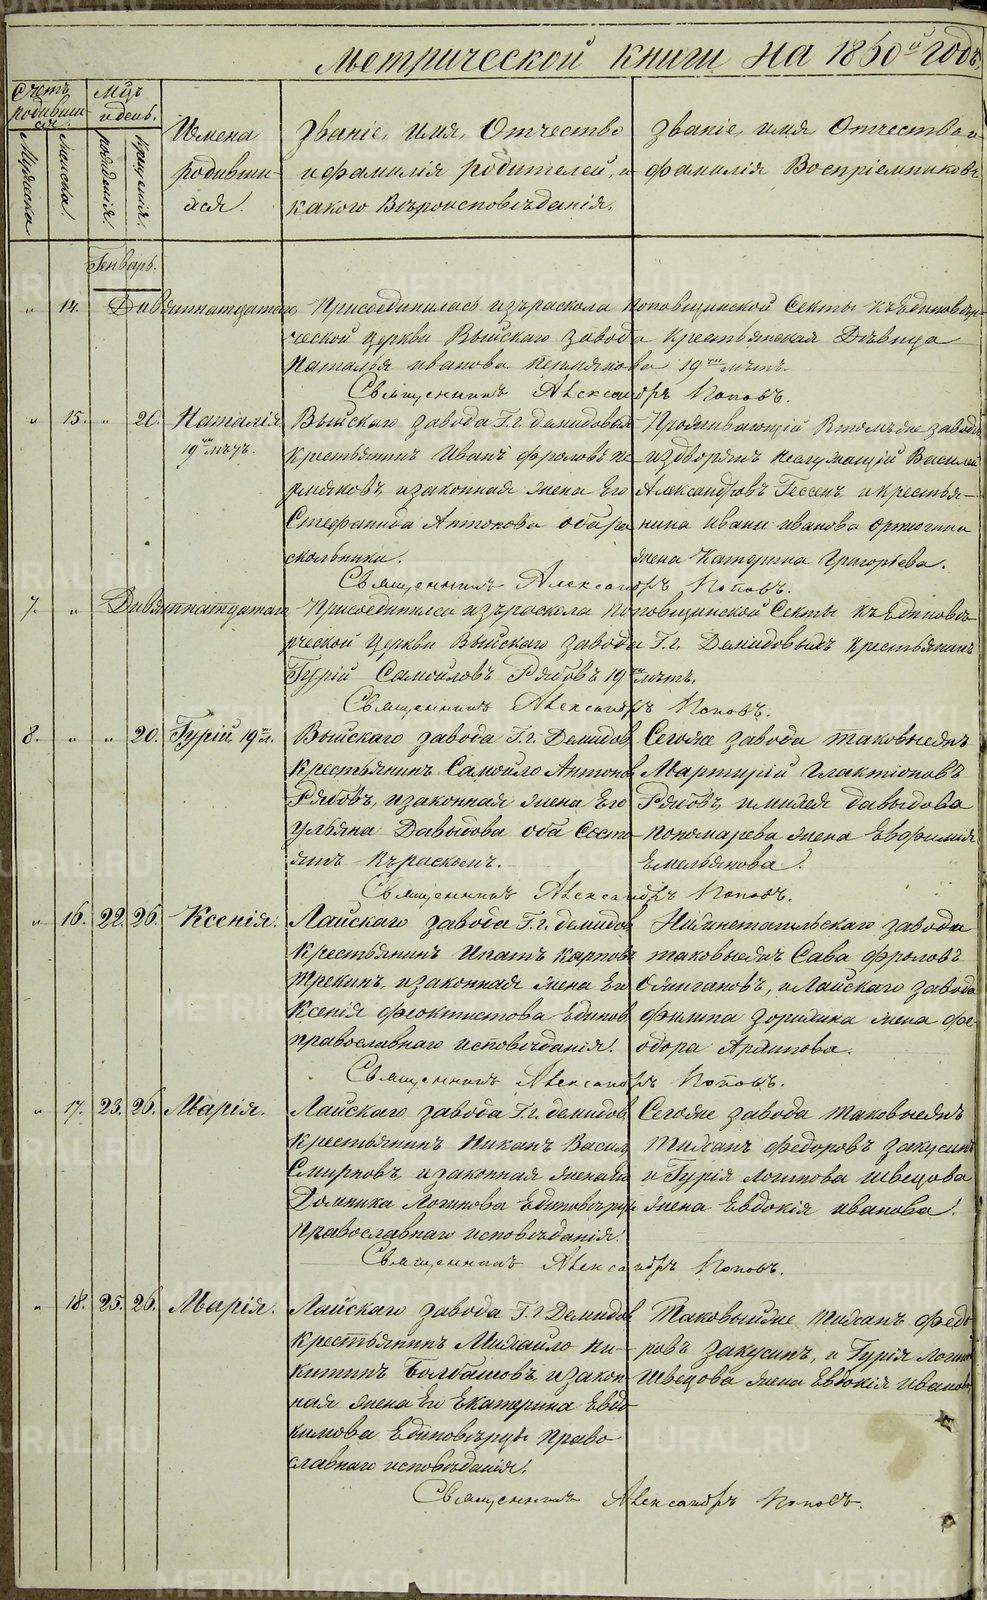 Метрической книги на 1850й годъ
Счетъ родившихся.
Мужеска.
Женска.
Мцъ и день.
рожденія.
крещенія.
Имена родившихся.
Званіе, имя, Отчество
и фамилія родителей, и
какого Вѣроисповѣданія.
Званіе, имя Отчество и
фамилія Воспріемниковъ
Генварь.
" 14. Присоединилась изъ раскола поповщинской Секты къ Единовѣр-
ческой церкви Выйскаго завода крестьянская Дѣвица
Наталья иванова 19ти лѣтъ.
Священникъ Александръ Поповъ.
" 15. " 20. Наталія
19ти лѣтъ.
Выйскаго завода Г.г. демидовыхъ
крестьянинъ Иванъ Фроловъ
и законная жена Его
Стефанида Антонова оба ра
скольники.
Проживающій в томъ же заводѣ
Василій
Александровъ и крестья-
нина ивана иванова
жена Катерина Григорьева.
Священникъ Александръ Поповъ.
7. " Присоединился изъ раскола поповщинской Секты къ Единовѣ-
рческой Церкви Выйскаго завода Г.г. Демидовыхъ крестьянинъ
Гурій Самойловъ Рябовъ 19ти лѣтъ.
Священникъ Александръ Поповъ.
8. " " 20. Гурій 19ти л.
Выйскаго завода Г.г. Демидов
крестьянинъ Самойло Антонов
Рябовъ, и законная жена Его
Ульяна Давыдова оба Состо-
ятъ въ расколѣ.
Сегоже завода таковыежъ
Мартирій Галактіоновъ
Рябовъ, и давыдова
пономарева жена Евфимія
Емельянова.
Священникъ Александръ Поповъ.
" 16. 22. 26. Ксенія.
Лайскаго завода Г.г. демидов
крестьянинъ Ипатъ Карповъ
и законная жена Его
Ксенія Феоктистова Единов
православнаго исповѣданія.
Нижнетагильскаго завода
таковыежъ Сава Фроловъ
и Лайскаго завода
Филипа жена Фе-
одора Архипова.
Священникъ Александръ Поповъ.
" 17. 23. 26. Марія.
Лайскаго завода Г.г. демидов
крестьянинъ Васил
Смирновъ, и законная жена Его
Домника Логинова Единовѣрч
Православнаго исповѣданія.
Сегоже завода таковыежъ
Федоровъ Закусинъ
и Гурія Логинова Швецова
жена Евдокія иванова.
Священникъ Александръ Поповъ.
" 18. 25. 26. Марія.
Лайскаго завода Г.г Демидов
крестьянинъ Михайло Ни-
китинъ и закон
ная жена Его Екатерина Евдо
кимова Единовѣрч Право
славнаго исповѣданія.
Таковыйже Федо
ровъ Закусинъ, и Гурія Логинов
Швецова жена Евдокія Иванов
Священникъ Александръ Поповъ.
METRIKI.GASO-URAL.RU